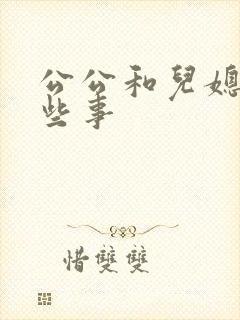 公公和兒媳
些事
惜雙雙